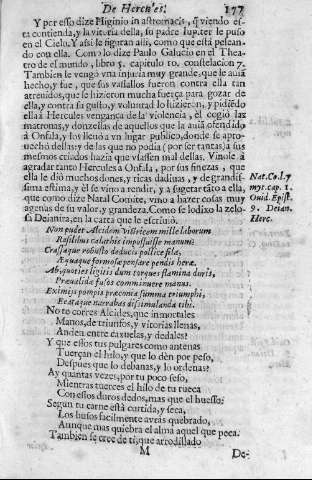 De Hercules. 177
Y por esso dize Higinio in astromacis, q̃ viendo es-
ta contienda, y la vitoria della, su padre Iupiter le puso
en el Cielo. Y assi le figuran alli, como que està pelean-
do con ella. Como lo dize Paulo Galucio en el Thea-
tro de el mundo, libro 5. capitulo 10. constelacion 7.
Tambien le vengò vna injuria muy grande, que le auiã
hecho, y fue, que sus vasallos fueron contra ella tan
atreuidos, que le hizieron mucha fuerça para gozar de
ella, y contra su gusto, y voluntad lo hizieron, y pidiẽdo
ella à Hercules vengança de la violencia, èl cogio las
matronas, y donzellas de aquellos que la auiã ofendido
à Onfala, y los lleuò a vn lugar publico, donde se apro-
uechò dellas: y de las que no podia (por ser tantas) a sus
mesmos criados hazia que vsassen mal dellas. Vinole à
agradar tanto Hercules a Onfala, por sus finezas, que
ella le diò muchos dones, y ricas dadiuas, y de grandis-
sima estima, y èl se vino a rendir, y a sugetar tãto a ella,
que como dize Natal Comite, vino a hazer cosas muy
agenas de su valor, y grandeza. Como se lo dixo la zelo-
sa Deianira, en la carta que le escriuiò.
Nat. Co. l. 7
myt. cap. 1.
Ouid. Epist.
9. Deian.
Herc.
Non pudet Alcidem victricem mille laborum
Rasilibus calathis imposuisse manum?
Crassaque robusto deducis pollice fila,
Æquaque formosæ pensare pendis heræ.
Ah, quoties digitis dum torques stamina duris,
Præualidæ fusos comminuere manus.
Eximijs pompis præconia summa triumphi,
Factaque narrabas dissimulanda tibi.
No te corres Alcides, que inmortales
Manos, de triunfos, y vitorias llenas,
Anden entre dexuelas, y dedales?
Y que essos tus pulgares como antenas
Tuerçan el hilo, y que lo dèn por peso,
Despues que lo debanas, y lo ordenas?
Ay quantas vezes, por tu poco seso,
Mientras tuerces el hilo de tu rueca
Con essos duros dedos, mas que el huesso:
Segun tu carne està curtida, y seca,
Los husos facilmente avràs quebrado,
Aunque mas quiebra el alma aquel que peca.
Tambien se cree de ti, que arrodillado
M De-